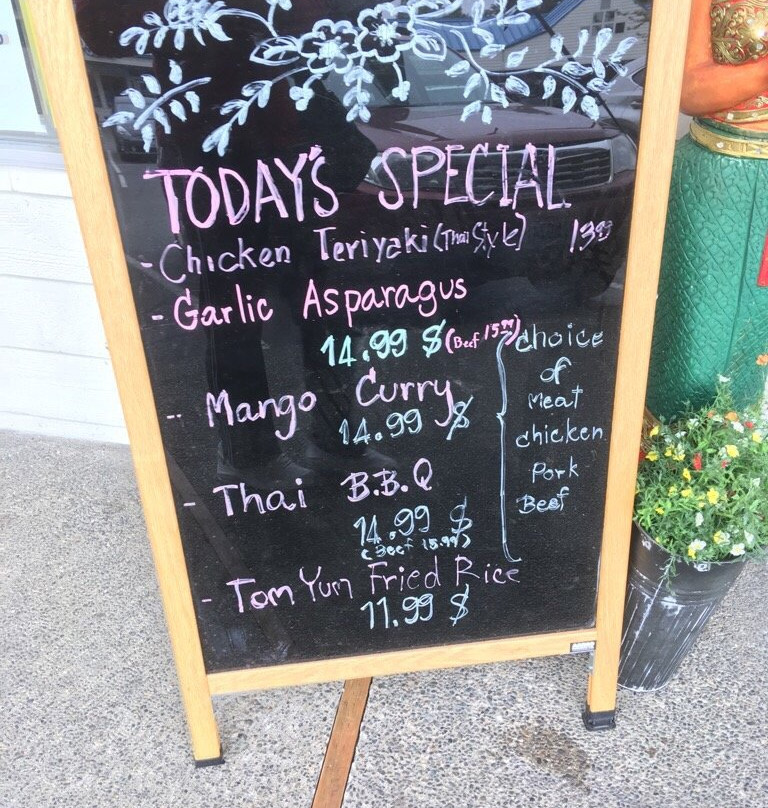 TODAY'S SPECIAL
- Chicken Teriyaki (Thai Style) 13.99
- Garlic Asparagus
14.99 $ (Beef 15.99)
- Mango Curry
14.99 $
- Thai B.B.Q
14.99 $
(Beef 15.99)
- Tom Yum Fried Rice
11.99 $
choice
of
meat
chicken
Pork
Beef